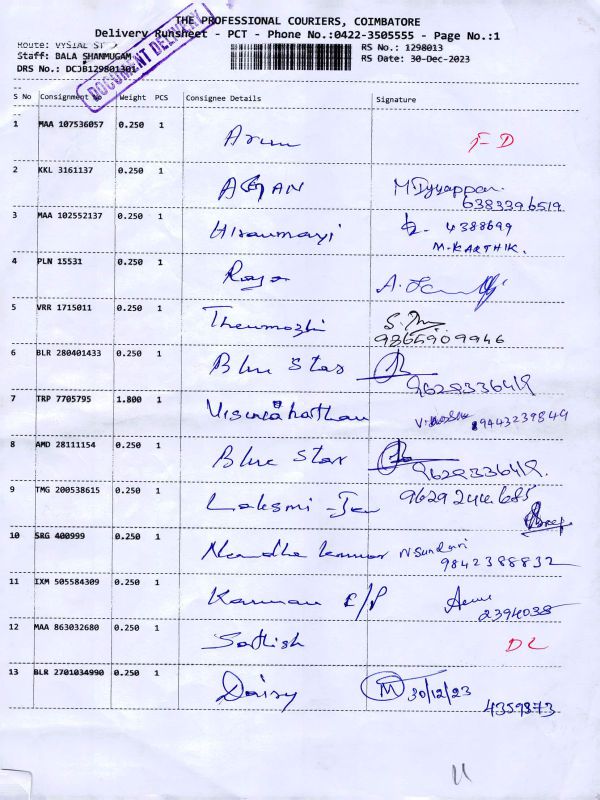 THE PROFESSIONAL COURIERS, COIMBATORE
Delivery Runsheet - PCT - Phone No.:0422-3505555 - Page No.:1
Route: VYSIAL ST
RS No.: 1298013
Staff: BALA SHANMUGAM
RS Date: 30-Dec-2023
DRS No.:
DOCUMENT DELIVERY
S No Consignment No Weight PCS Consignee Details Signature
1 MAA 107536057 0.250 1 Arun
2 KKL 3161137 0.250 1 M. Iyyappan
6383396519
3 MAA 102552137 0.250 1 Hiranmayi 4388699
M.KARTHIK.
4 PLN 15531 0.250 1 Raja A.
5 VRR 1715011 0.250 1 Thenmozhi
9865909946
6 BLR 280401433 0.250 1 Blue Star
9629336419
7 TRP 7705795 1.800 1 9443239849
8 AMD 28111154 0.250 1 Blue Star
9629336419.
9 TMG 200538615 0.250 1 Laksmi 9629244685
10 SRG 400999 0.250 1 Nandha kumar N Sundari
9842388832
11 IXM 505584309 0.250 1 Kannan E/P
2394038
12 MAA 863032680 0.250 1 Sathish DL
13 BLR 2701034990 0.250 1 Daisy M 30/12/23
4359373